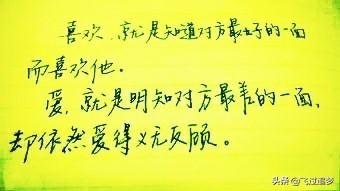 喜欢,就是知道对方最好的一面
而喜欢他。
爱,就是明知对方最差的一面,
却依然爱得义无反顾。
头条@飞过追梦